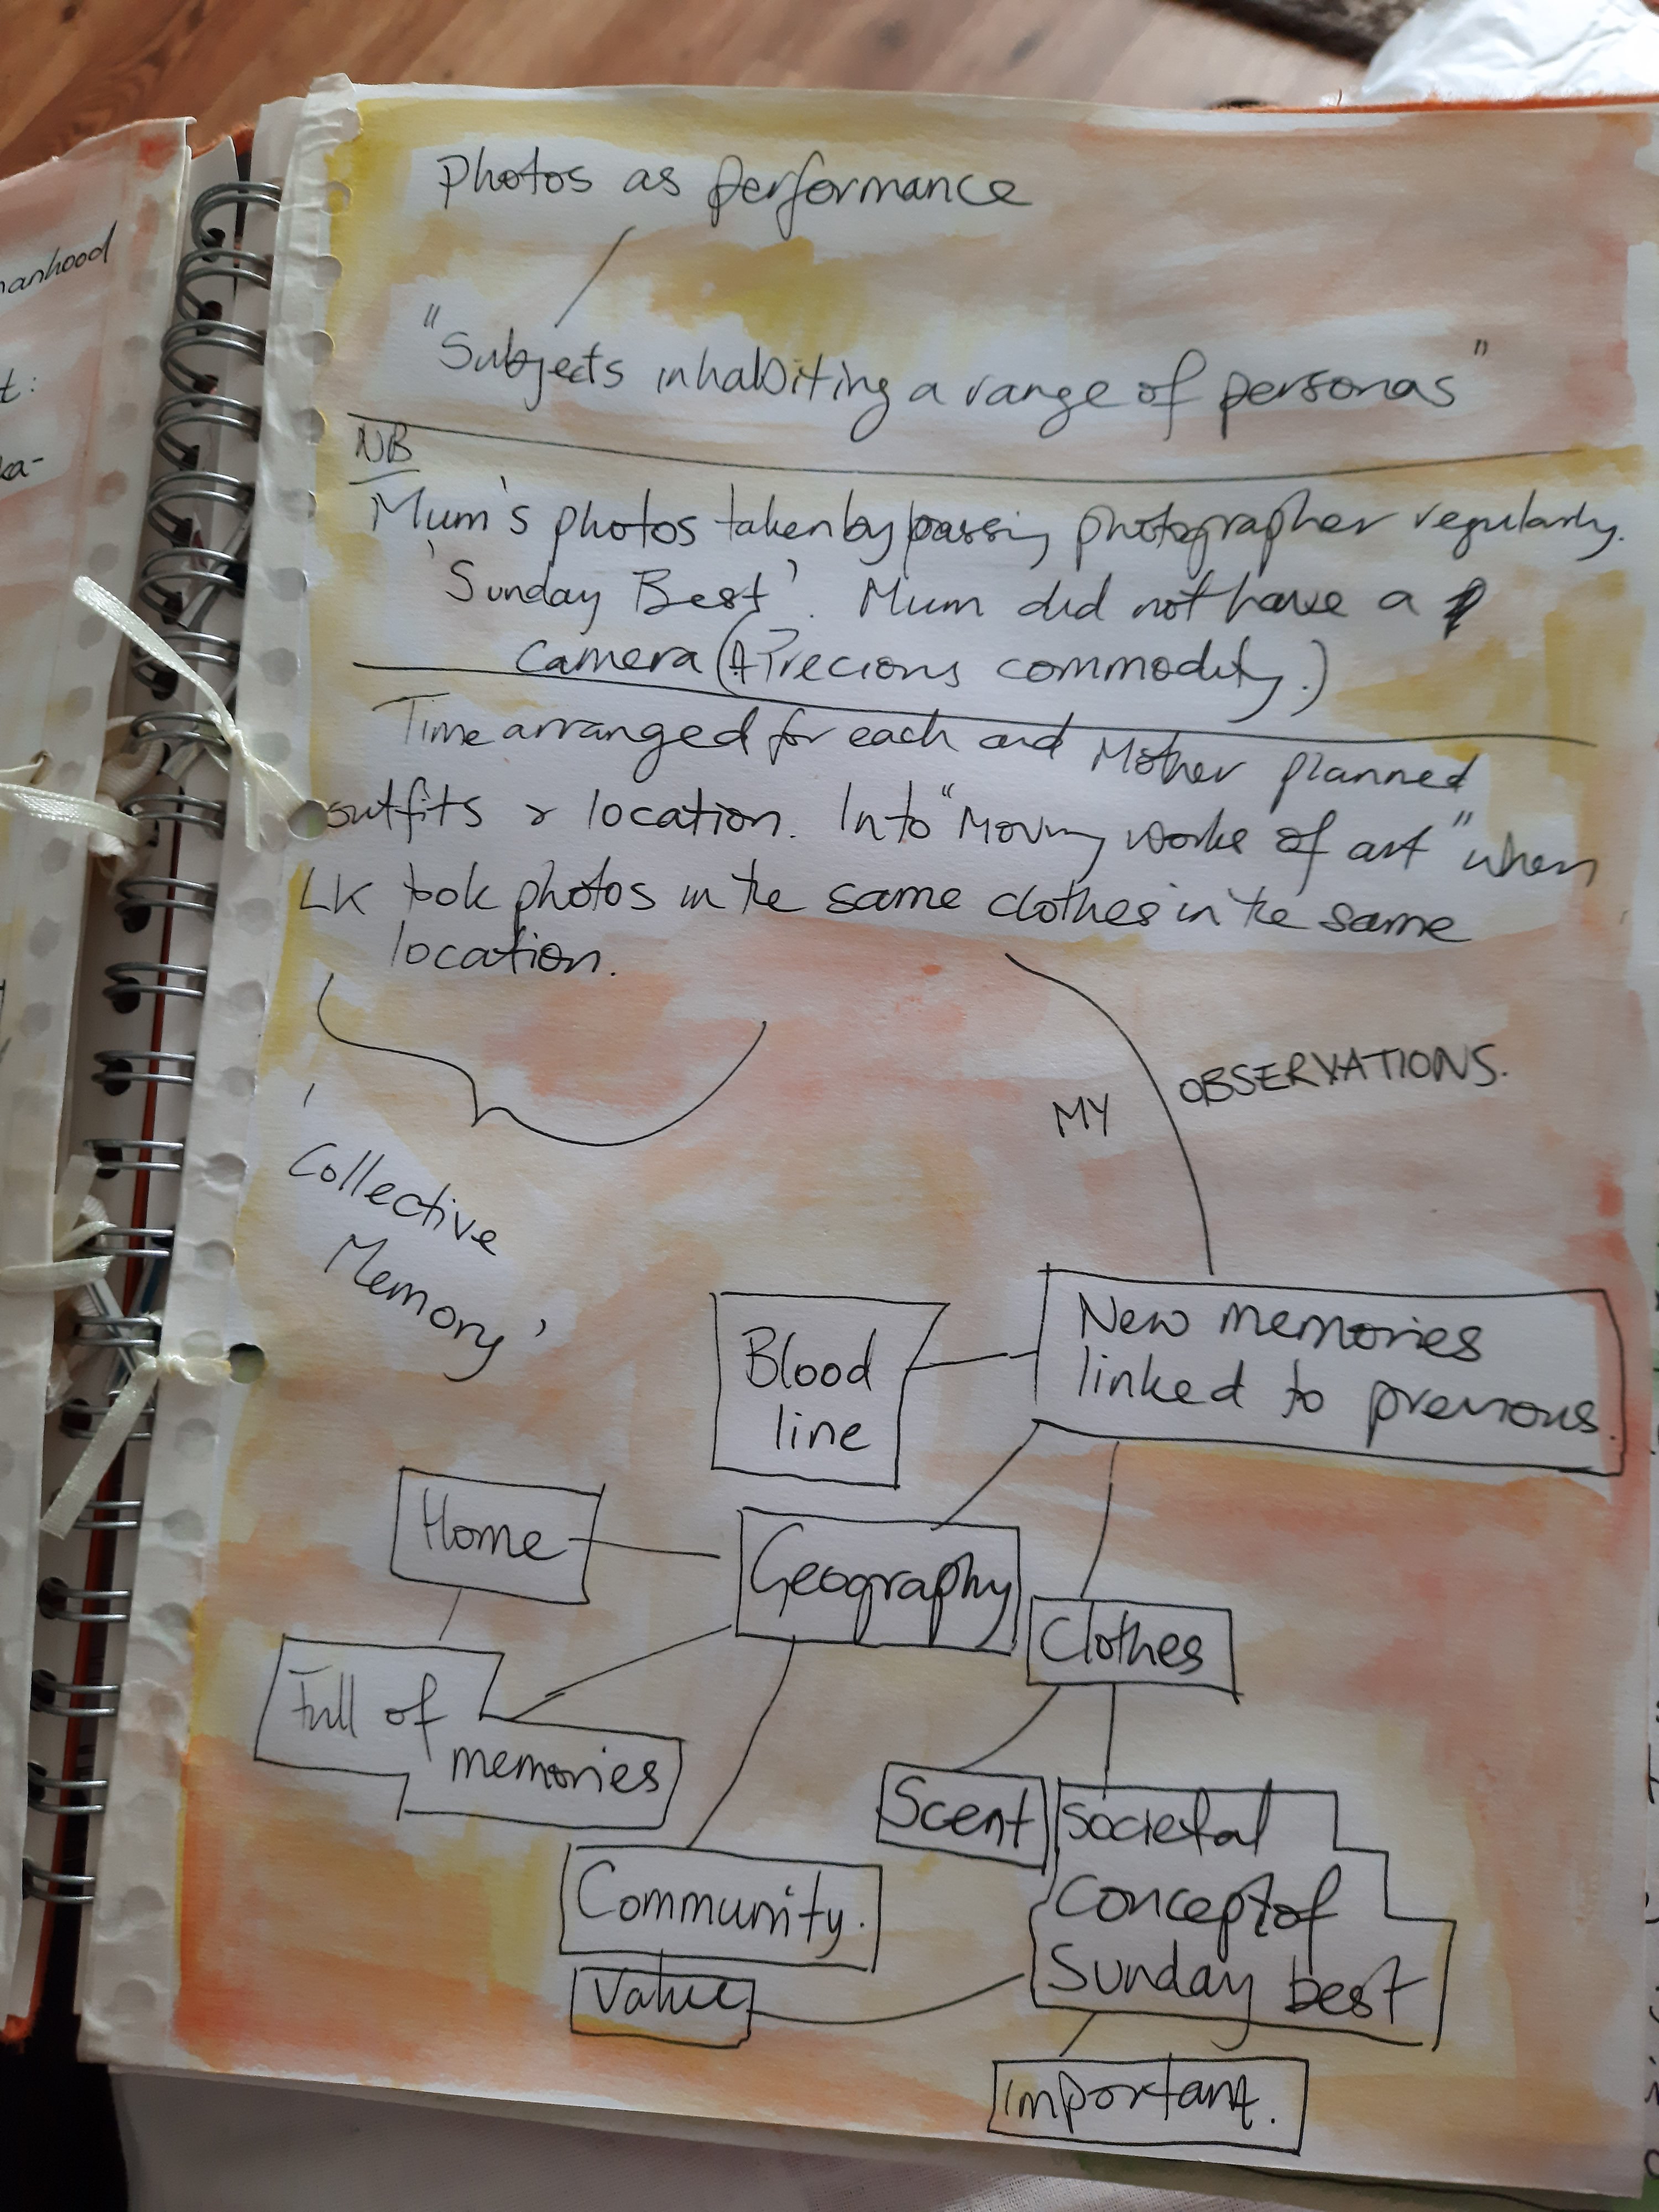 Photos as performance
"Subjects inhabiting a range of personas"
NB
Mum's photos taken by passing photographer regularly.
'Sunday Best'. Mum did not have a
camera (A Precious commodity.)
Time arranged for each and Mother planned
outfits & location. Into "Moving works of art" when
LK took photos in the same clothes in the same
location.
MY OBSERVATIONS.
'Collective
Memory'
New memories
linked to previous.
Blood
line
Home
Geography
Clothes
Full of
memories
Scent
Societal
Concept of
Sunday best
Community.
Value
Important.
manhood
t:
ka-